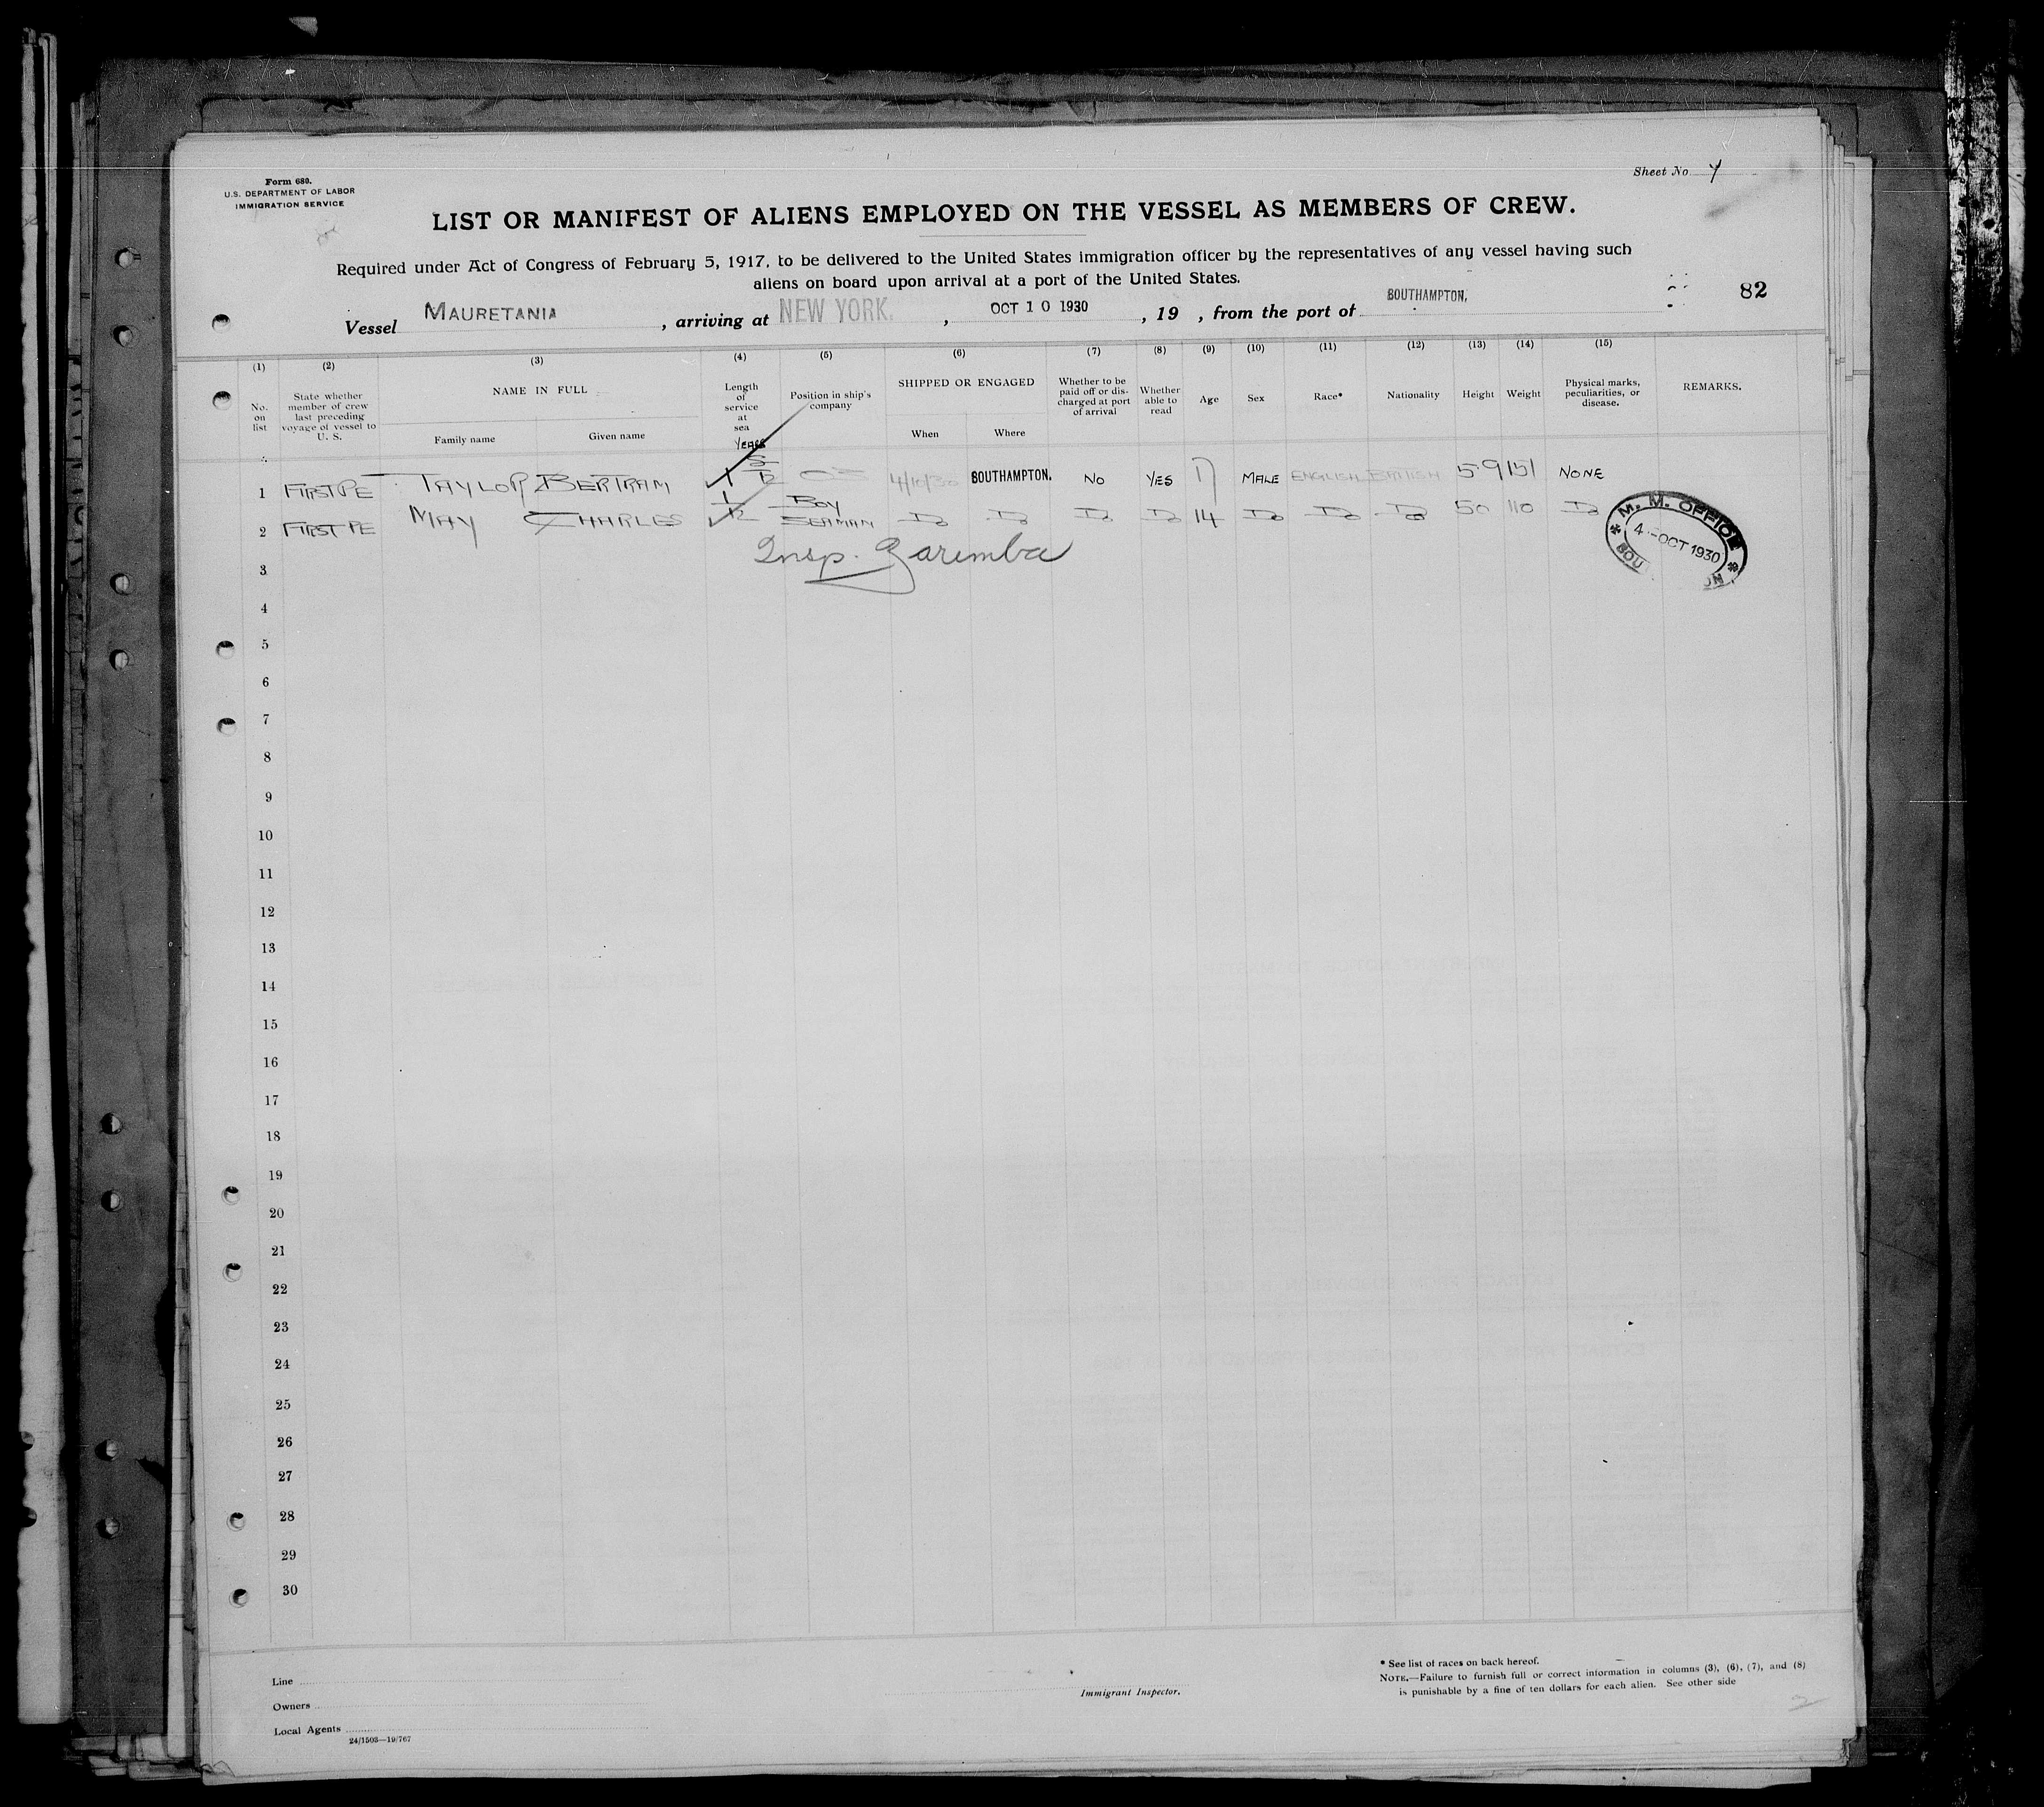 Form 680.
U.S. DEPARTMENT OF LABOR
IMMIGRATION SERVICE
Sheet No
LIST OR MANIFEST OF ALIENS EMPLOYED ON THE VESSEL AS MEMBERS OF CREW.
Required under Act of Congress of February 5, 1917, to be delivered to the United States immigration officer by the representatives of any vessel having such
aliens on board upon arrival at a port of the United States.
82
Vessel MAURETANIA, arriving at NEW YORK, OCT 10 1930, 19 , from the port of SOUTHAMPTON.
(1) (2) (3) (4) (5) (6) (7) (8) (9) (10) (11) (12) (13) (14) (15)
No. on list
State whether member of crew last preceding voyage of vessel to U. S.
NAME IN FULL
Family name
Given name
Length of service at sea
YEARS
Position in ship's company
SHIPPED OR ENGAGED
When
Where
Whether to be paid off or discharged at port of arrival
Whether able to read
Age
Sex
Race*
Nationality
Height
Weight
Physical marks, peculiarities, or disease.
REMARKS.
1 FIRST PE TAYLOR BERTRAM 5/12 OS 4/10/30 SOUTHAMPTON. NO YES 17 MALE ENGLISH BRITISH 5-9 151 NONE
2 FIRST PE MAY CHARLES 1/12 BOY SEAMAN Do Do Do Do 14 Do Do Do 50 110 Do
Insp. Zaremba
M. M. OFFICE
4-OCT 1930
3
4
5
6
7
8
9
10
11
12
13
14
15
16
17
18
19
20
21
22
23
24
25
26
27
28
29
30
Line
Owners
Local Agents
24/1503—19/767
Immigrant Inspector.
* See list of races on back hereof.
NOTE.—Failure to furnish full or correct information in columns (3), (6), (7), and (8)
is punishable by a fine of ten dollars for each alien. See other side